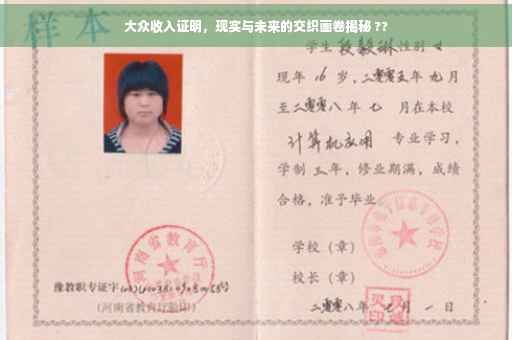 大众收入证明，现实与未来的交织画卷揭秘??
样本
学生段毅琳性别女
现年16岁，二零零五年九月
至二零零八年七 月在本校
计算机应用 专业学习，
学制三年，修业期满，成绩
合格，准予毕业
学校（章）
校长（章）
二零零八年七月一日
河南省教育厅
豫教职专证字
（河南省教育厅验印）